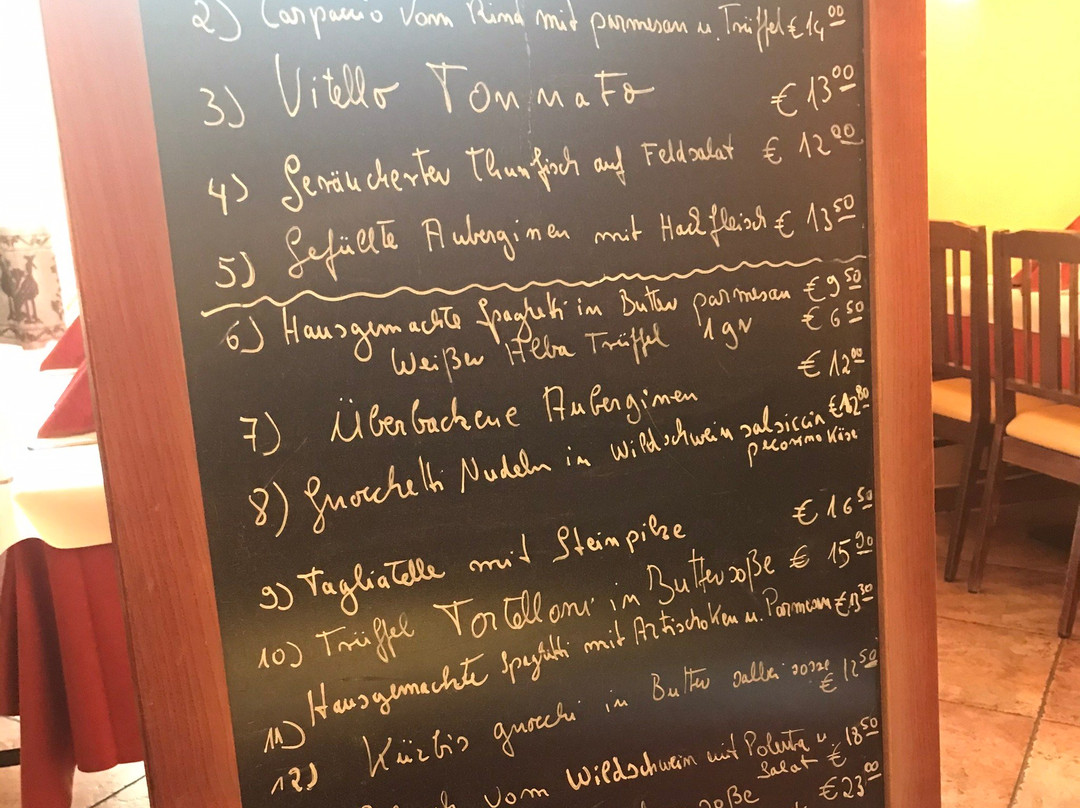 2) Carpaccio vom Rind mit parmesan u. Trüffel € 14,00
3) Vitello Tonnato € 13,00
4) Geräucherter Thunfisch auf Feldsalat € 12,00
5) Gefüllte Auberginen mit Hackfleisch € 13,50
6) Hausgemachte Spaghetti in Butter parmesan € 9,50
Weißer Alba Trüffel 1 gr € 6,50
7) Überbackene Auberginen € 12,00
8) Gnocchetti Nudeln in Wildschwein salsiccia
pecorino Käse
9) Tagliatelle mit Steinpilze € 16,50
10) Trüffel Tortelloni in Buttersoße € 15,90
11) Hausgemachte Spaghetti mit Artischoken u. Parmesan
12) Kürbis gnocchi in Butter salbei sosse
€ 12,50
vom Wildschwein mit Polenta u
Salat € 18,50
soße € 23,00